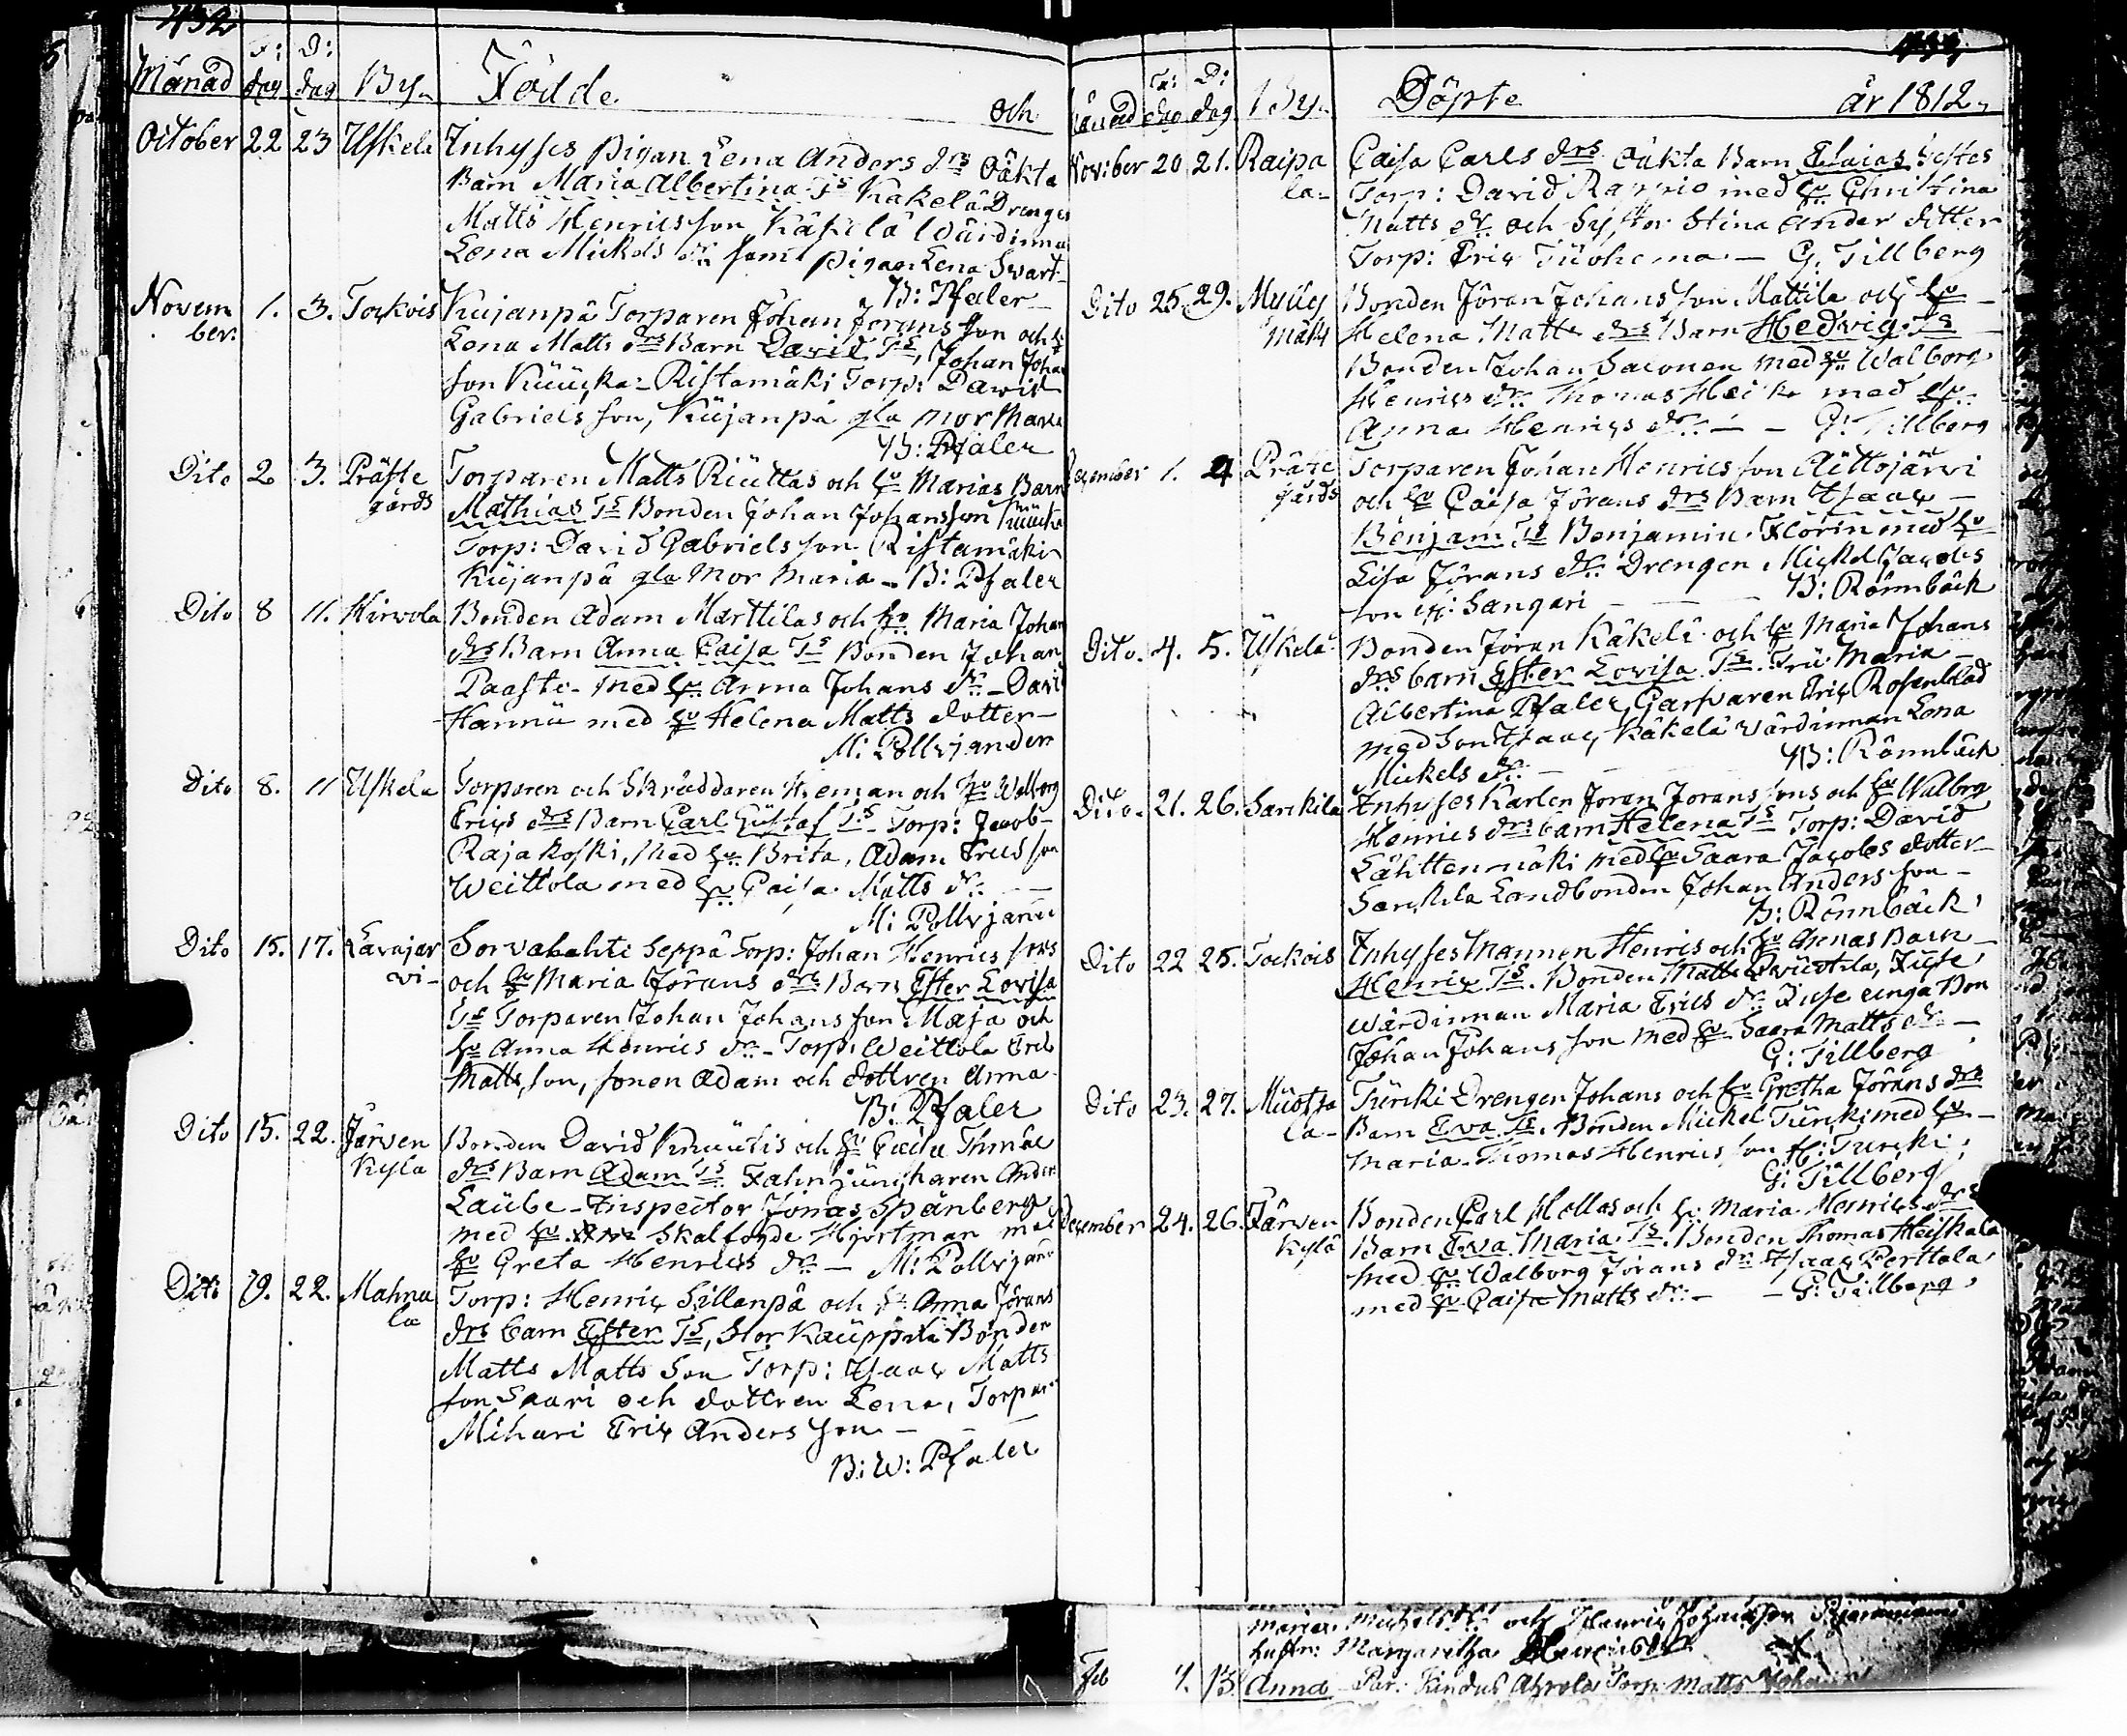 432
Månad F: dag D: dag By. Födde och
October 22 23 Uskela Inhyses Pigan Lena Anders drs Oäkta
Barn Maria Albertina Ts Kakelä Drengen
Matts Henricsson Käkelä Wärdinna
Lena Mickels dr samt Pigan Lena Svart
B: Pfaler
Novem 1. 3. Torkois Kujanpä Torparen Johan Jörans son och hu
ber. Lena Matts drs Barn David Ts, Johan Johan
son Ristamäki Torp: Dawid
Gabriels son, Kujanpä gla mor Maria
B: Pfaler
Dito 2 3. Präste Torparen Matts Riuttas och hu Marias Barn
gårds Mathias Ts Bonden Johan Johansson
Torp: David Gabriels son Ristamäki
Kujanpä gla Mor Maria - B: Pfaler
Dito 8 11. Hirvola Bonden Adam Marttilas och hu Maria Johan
drs Barn Anna Caisa Ts Bonden Johan
Paasto med hu Anna Johans dr - Davi
Hannu med hu Helena Matts dotter -
M: Pollvjander
Dito 8. 11 Uskela Torparen och Skräddaren Heman och hu Walborg
Erics drs Barn Carl Gustaf Ts Torp: Jacob
Rajakoski, Med hu Brita, Adam Erics son
Weittola med hu Caisa Matts dr -
M: Pollvjander
Dito 15. 17. Lavajär Sorvabahti Seppä Torp: Johan Henrics sons
vi - och hu Maria Jörans drs Barn Ester Lovisa
Ts Torparen Johan Johans son Maja och
hu Anna Henrics dr - Torp: Weittola Eric
Matts son, sonen Adam och dottren Anna
B: Pfaler
Dito 15. 22. Järven Bonden David Knuutis och hu Caisa Thomae
kyla drs Barn Adam Ts Fahnjunkaren Anders
Laube - Inspector Jonas Spånberg
med hu Skalfogde Hjortman med
hu Greta Henrics dr - M: Pollvjander
Dito 19. 22. Mahna Torp: Henric Sillanpä och hu Anna Jörans
la drs barn Ester Ts, Stor Kauppila Bonden
Matts Matts Son Torp: Isaac Matts
son Saari och dottren Lena, Torpar
Mihari Eric Anders son -
B: W: Pfaler
433
Månad Fö: dag D: dag By. Döpte år 1812.
November 20 21. Raipa Caisa Carls drs Oäkta Barn Elaias
la - Torp: David Rappio med hu Christina
Matts dr och Syster Stina Anders dotter
Torp: Eric Tuohema - G: Tillberg
Dito 25. 29. Mylly Bonden Jöran Johans son Mattila och hu
mäky Helena Matts drs Barn Hedvig Ts
Bonden Johan Salonen med hu Walborg
Henrics dr Thomas Heick med hu
Anna Henrics dr - G: Tillberg
December 1. 4 Präste Torparen Johan Henrics son Aittojärvi
gårds och hu Caisa Jörans drs Barn Isaac
Benjam Ts Benjamin Florin med hu
Lisa Jörans dr Drengen Mickel Jacobs
son H: Sangari B: Rönnbäck
Dito. 4. 5. Uskela Bonden Jöran Käkelä och hu Maria Johans
drs barn Ester Lovisa Ts Fru Maria
Albertina Pfaler, Garfvaren Eric Rosenblad
med Son Isaac, Käkelä Wärdinnan Lena
Mickels dr B: Rönnbäck
Dito. 21. 26. Sarckila Inhyses Karlen Jöran Jörans sons och hu Walborg
Henrics drs barn Helena Ts Torp: David
Lähtteenmäki med hu Saara Jacobs dotter
Sarckila Landbonden Johan Anders son -
B: Rönnbäck
Dito 22 25. Torkois Inhyses Mannen Henrics och hu Annas Barn
Henric Ts. Bonden Matts
Wärdinnan Maria Erics dr unga Bon
Johan Johans son med hu Saara Matts dr -
G: Tillberg
Dito 23. 27. Muotja Turcki Drengen Johans och hu Gretha Jörans drs
la - Barn Eva Ts. Bonden Mickel Turcki med hu
Maria Thomas Henrics son H: Turcki
G: Tillberg
December 24. 26. Järven Bonden Carl Hollas och hu Maria Henrics drs
kylä Barn Eva Maria Ts. Bonden Thomas Heiskala
med hu Walborg Jörans dr Isaac Perttola
med hu Caisa Matts dr - G: Tillberg
Maria Michelsdr och Henric Johansson
hustr: Margaretha Henricsdr
Feb 7. 13. Anna Par: Torp: Matts